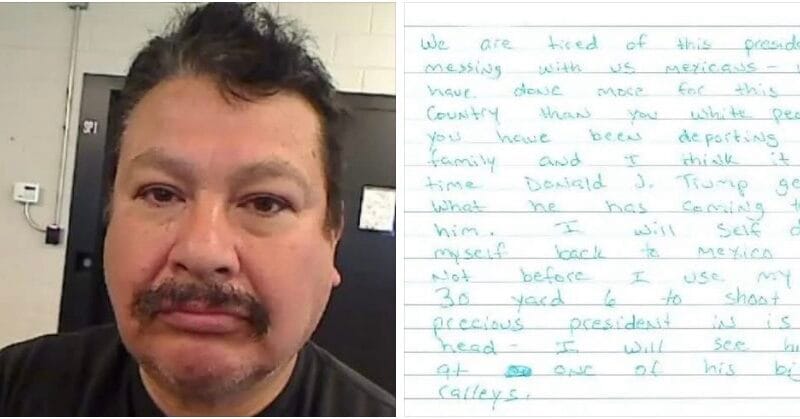 SPI
We are tired of this preside
messing with us mexicans -
have done more for this
country than you white peo
you have been deporting
family and I think it
time Donald J. Trump ge
what he has coming t
him. I will self d
myself back to mexico
not before I use my
30 yard 6 to shoot
precious president in is
head - I will see hi
at one of his bi
ralleys.